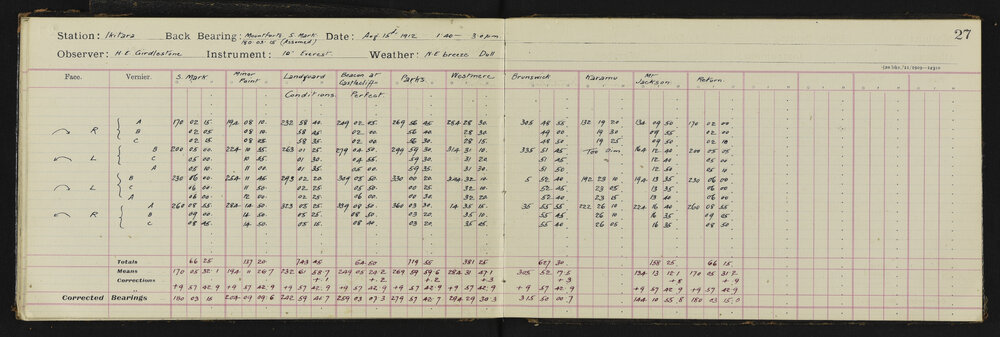 Station: Ikitara Back Bearing: Mountfort's S. Mark Date: Aug 15th 1912 1.40 — 3.0 p.m. 27
180.03.15 (Assumed)
Observer: H. E. Girdlestone Instrument: 10" Everest Weather: N.E breeze Dull
Face. Vernier. S. Mark Minor Point Landguard Beacon at Castlecliff Parks Westmere Brunswick Karamu Mr Jackson Return.
Conditions Perfect.
R A 170 02 15 194 08 10 232 58 40 249 02 05 269 56 45 284 28 30 305 48 55 132 19 20 134 09 50 170 02 00
B 02 05 08 10 58 45 02 00 56 40 28 30 49 00 19 30 09 55 02 00
C 02 15 08 05 58 35 02 00 56 30 28 15 48 50 19 25 09 50 02 10
L B 200 05 00 224 10 55 263 01 25 279 04 50 299 59 30 314 31 10 335 51 45 Too dim 164 12 40 200 05 05
C 05 00 10 55 01 30 04 55 59 30 31 20 51 45 12 40 05 00
A 05 10 11 00 01 35 05 00 59 35 31 30 51 50 12 50 05 10
L B 230 06 00 254 11 45 293 02 20 309 05 50 330 00 20 344 32 10 5 52 40 192 23 10 194 13 35 230 06 00
C 06 00 11 50 02 25 05 50 00 25 32 10 52 45 23 05 13 35 06 00
A 06 00 12 00 02 25 06 00 00 30 32 20 52 40 23 15 13 40 06 00
R A 260 08 55 284 14 50 323 05 25 339 08 50 360 03 30 14 35 15 35 55 55 222 26 10 224 16 40 260 08 55
B 09 00 14 50 05 25 08 50 03 20 35 10 55 45 26 10 16 35 09 05
C 08 45 14 50 05 15 08 40 03 20 35 05 55 40 26 05 16 35 08 50
Totals 66 25 137 20 743 45 64 50 719 55 381 25 627 30 158 25 66 15
Means 170 05 32.1 194 11 26.7 232 61 58.7 249 05 24.2 269 59 59.6 284 31 47.1 305 52 17.5 134 13 12.1 170 05 31.2
Corrections +.1 +.2 +.2 +.3 +.3 +.8 +.9
+9 57 42.9 +9 57 42.9 +9 57 42.9 +9 57 42.9 +9 57 42.9 +9 57 42.9 +9 57 42.9 +9 57 42.9 +9 57 42.9
Corrected Bearings 180 03 15 204 09 09.6 242 59 41.7 259 03 07.3 279 57 42.7 294 29 30.3 315 50 00.7 144 10 55.8 180 03 15.0